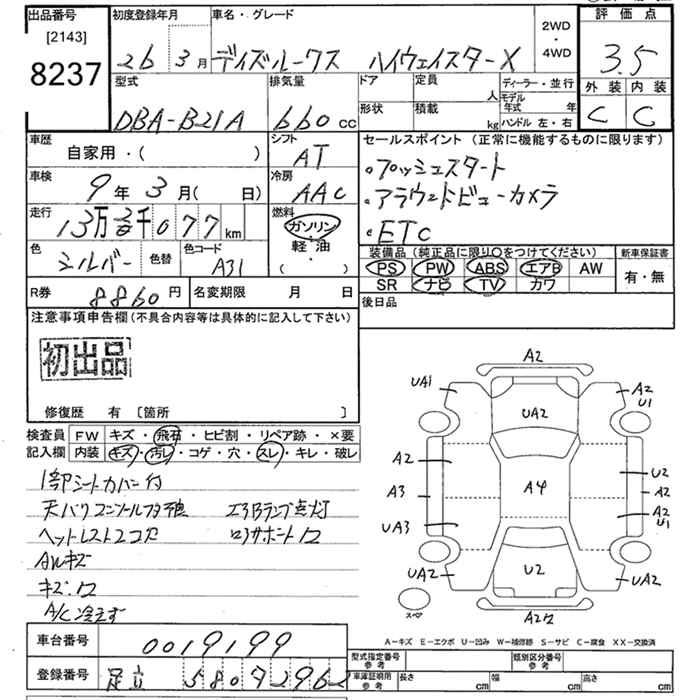 出品番号
[2143]
8237
初度登録年月
26 3月
車名・グレード
デイズルークス ハイウェイスターX
2WD
・
4WD
評価点
3.5
外装 内装
C C
型式
DBA-B21A
排気量
660 cc
ドア
定員
人
形状
積載
kg
ディーラー・並行
モデル年式 年
ハンドル 左・右
車歴
自家用・( )
シフト
AT
車検
9年 3月( 日)
冷房
AAC
走行
13万 千077km
燃料
ガソリン
・
軽油
( )
色
シルバー
色替
色コード
A31
セールスポイント (正常に機能するものに限ります)
・プッシュスタート
・アラウンドビューカメラ
・ETC
装備品 (純正品に限り○をつけてください)
PS PW ABS エアB AW
SR ナビ TV カワ
新車保証書
有・無
R券 8860円
名変期限 月 日
後日品
注意事項申告欄 (不具合内容等は具体的に記入して下さい)
初出品
修復歴 有 [箇所 ]
検査員記入欄
FW キズ・飛石・ヒビ割・リペア跡・×要
内装 キズ・汚レ・コゲ・穴・スレ・キレ・破レ
1部シートカバー付
天バリコンソールフタ エアBランプ点灯
ヘットレスト2コ欠 ロアサポート
AWキズ
キズ・
A/C冷えず
A2
UA1
A2
U1
UA2
A2
U2
A3
A4
A2
A2
U1
UA3
UA2
U2
UA2
スペア
A2
A-キズ E-エクボ U-凹み W-補修跡 S-サビ C-腐食 XX-交換済
車台番号
0019199
登録番号
足立 580 ヌ 2962
型式指定番号
参考
類別区分番号
参考
車庫証明用
参考
長さ cm
幅 cm
高さ cm